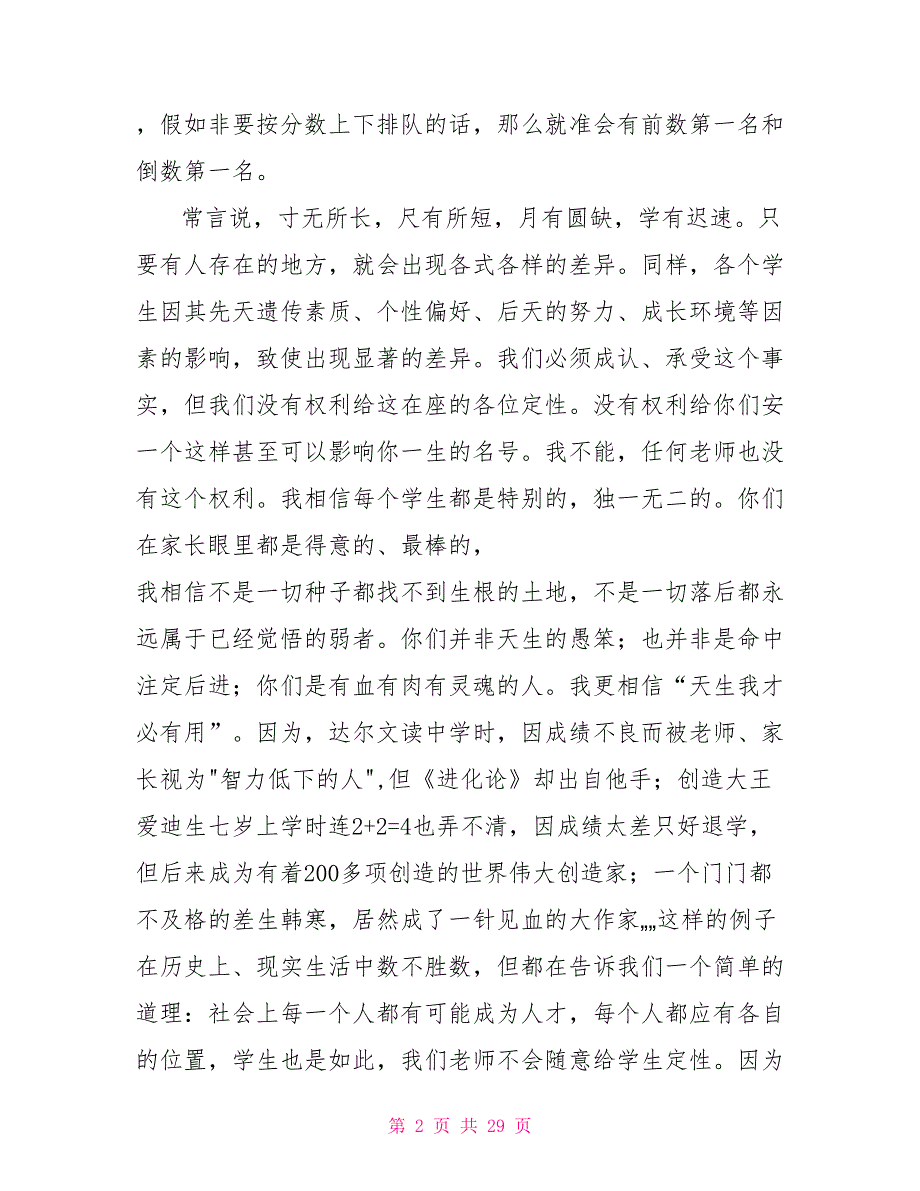 ，假如非要按分数上下排队的话，那么就准会有前数第一名和
倒数第一名。
常言说，寸无所长，尺有所短，月有圆缺，学有迟速。只
要有人存在的地方，就会出现各式各样的差异。同样，各个学
生因其先天遗传素质、个性偏好、后天的努力、成长环境等因
素的影响，致使出现显著的差异。我们必须成认、承受这个事
实，但我们没有权利给这在座的各位定性。没有权利给你们安
一个这样甚至可以影响你一生的名号。我不能，任何老师也没
有这个权利。我相信每个学生都是特别的，独一无二的。你们
在家长眼里都是得意的、最棒的，
我相信不是一切种子都找不到生根的土地，不是一切落后都永
远属于已经觉悟的弱者。你们并非天生的愚笨；也并非是命中
注定后进；你们是有血有肉有灵魂的人。我更相信“天生我才
必有用”。因为，达尔文读中学时，因成绩不良而被老师、家
长视为"智力低下的人",但《进化论》却出自他手；创造大王
爱迪生七岁上学时连2+2=4也弄不清，因成绩太差只好退学，
但后来成为有着200多项创造的世界伟大创造家；一个门门都
不及格的差生韩寒，居然成了一针见血的大作家„„这样的例子
在历史上、现实生活中数不胜数，但都在告诉我们一个简单的
道理：社会上每一个人都有可能成为人才，每个人都应有各自
的位置，学生也是如此，我们老师不会随意给学生定性。因为
第 2 页 共 29 页